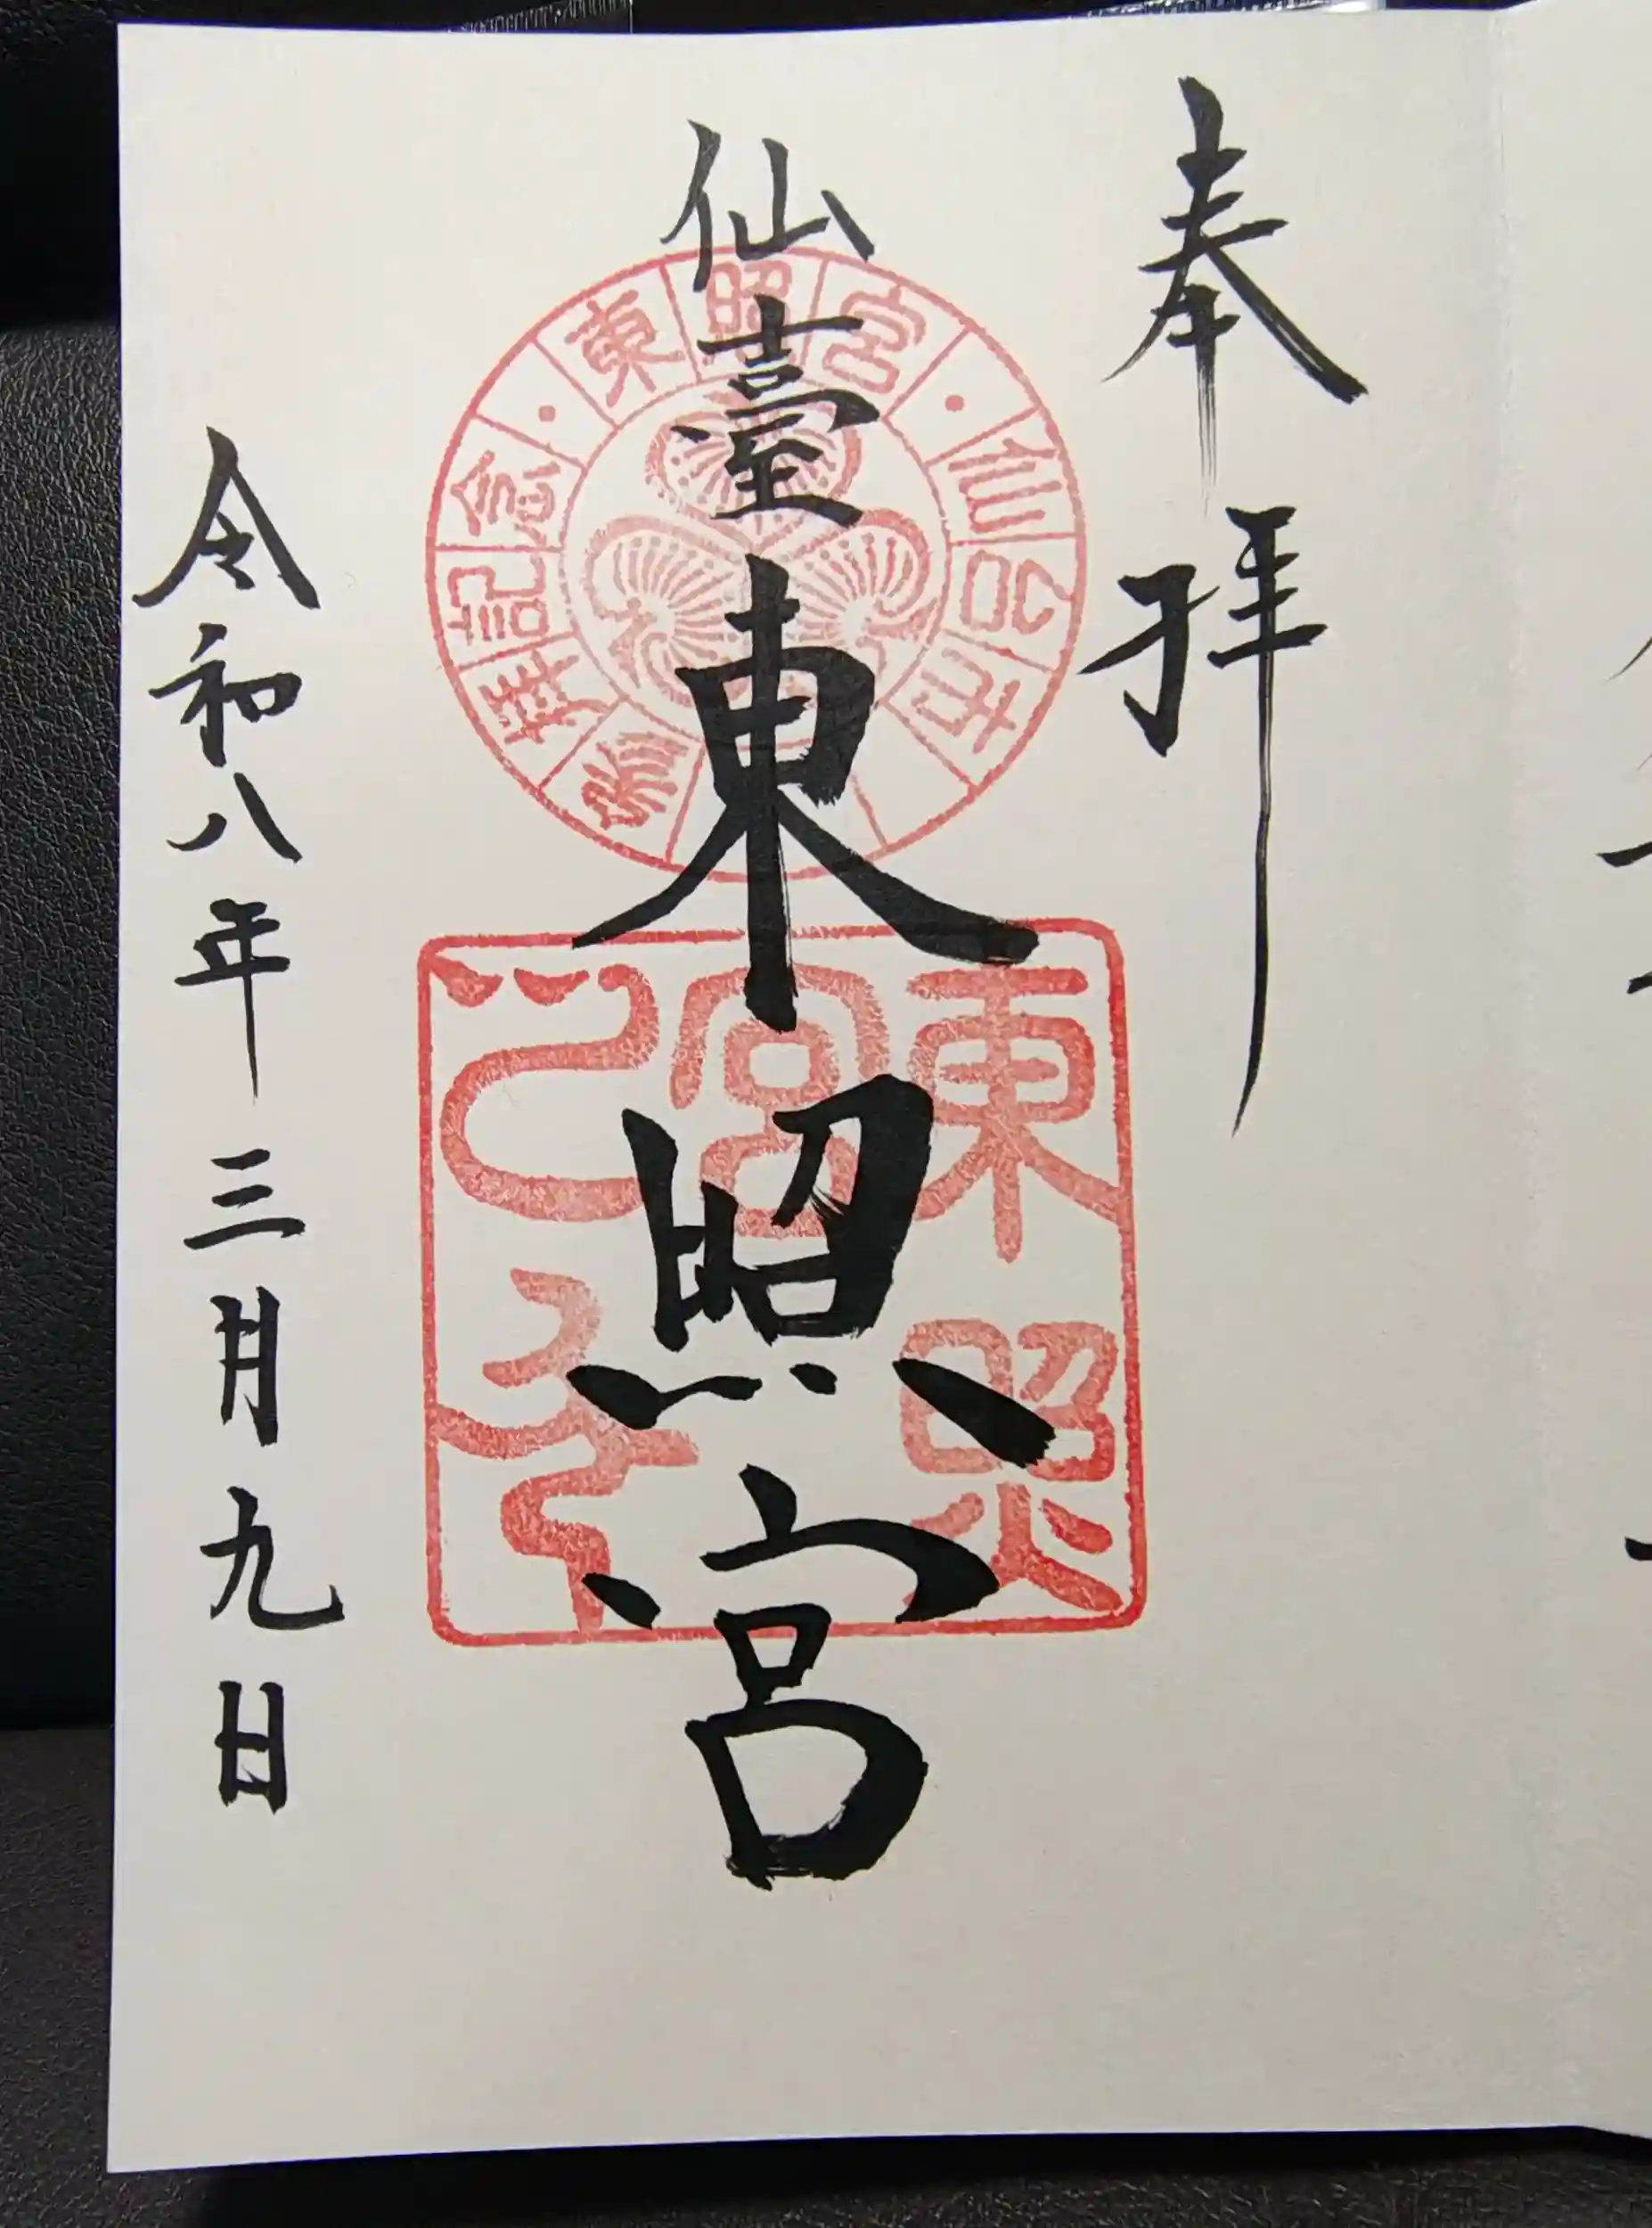 奉拝
仙臺東照宮
令和八年三月九日
東照宮
仙台市
参拝記念
東照宮